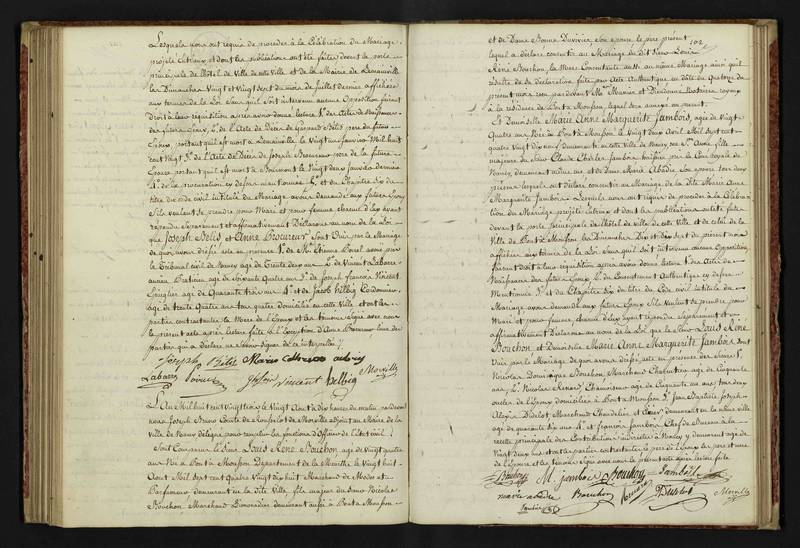 Lesquels nous ont requis de procéder à la Célébration du Mariage
projeté entr'eux et dont les publications ont été faites devant la porte
principale de l'hôtel de Ville de cette Ville et de la Mairie de
les Dimanches Vingt et Vingt sept du mois de Juillet dernier affichées
aux termes de la Loi sans qu'il soit intervenu aucune Opposition faisant
droit à leur requisition après avoir donné lecture 1.° des Actes de Naissance
des futurs Epoux, 2.° de l'Acte de Décès de Gaspard Bélis père du futur
Epoux portant qu'il est mort à le Vingt un Janvier Mil huit
cent Vingt 3.° de l'Acte de Décès de Joseph Procureur père de la future
Epouse portant qu'il est mort à le Vingt deux Janvier dernier
4.° de la procuration cy dessus mentionnée 5.° et du Chapitre Six du
titre du code civil intitulé du Mariage avons demandé aux futurs Epoux
s'ils veulent se prendre pour Mari et pour femme chacun d'eux ayant
répondu séparément et affirmativement Déclarons au nom de la Loi
que Joseph Bélis et Anne Procureur sont Unis par le Mariage
de quoi avons dressé acte en présence 1.° de M. Etienne avoué près
le Tribunal civil de Nancy agé de Trente deux ans 2.° de Vincent Labarre
ancien agé de Soixante Quatre ans 3.° de Joseph François Vincent
Epinglier agé de Quarante trois ans 4.° et de Jacob Helbig Cordonnier
agé de trente Quatre ans tous quatre domiciliés en cette Ville et ont les
parties contractantes la Mère de l'Epoux et les témoins signé avec nous
le présent acte après lecture faite à l'Exception d'Anne Procureur l'une des
parties qui a déclaré ne savoir signer de ce interpellée
Joseph Bélis
Labarre Vincent helbig Morville
L'An Mil huit cent Vingt le Vingt Aout à dix heures du matin pardevant
nous Joseph Bruno Comte de de Morville adjoint au Maire de la
Ville de Nancy délégué pour remplir les fonctions d'Officier de l'Etat civil
Sont Comparus le Sieur Louis René Bouchon, agé de vingt quatre
ans Né à Pont à Mousson Département de la Meurthe le Vingt huit
Aout Mil Sept cent Quatre Vingt dix huit Marchand de Modes et
Parfumeur demeurant en la dite Ville, fils majeur du Sieur Nicolas
Bouchon Marchand Limonadier demeurant aussi à Pont à Mousson
102
et de Dame Bonne Duvivier Son épouse le père présent
lequel a déclaré consentir au Mariage du dit Sieur Louis
René Bouchon, la Mère Consentante aussi au même Mariage ainsi qu'il
résulte de sa déclaration faite par Acte authentique en date du Quatorze du
présent mois reçu par devant Mes. Munier et Dieudonné Notaires royaux
à la résidence de Pont à Mousson lequel sera annexé au présent.
Et Demoiselle Marie Anne Marguerite Jambois, agée de Vingt
Quatre ans Née à Pont à Mousson le Vingt deux Avril Mil sept cent
quatre Vingt dix neuf demeurante en cette Ville de Nancy rue S.te Anne fille
majeure du Sieur Claude Charles Jambois de la Cour royale de
Nancy demeurant même rue et de Dame Marie Abadie Son épouse tous deux
présens lesquels ont déclaré consentir au Mariage de la Dite Marie Anne
Marguerite Jambois. Lesquels nous ont requis de procéder à la Célébra-
tion du Mariage projeté entr'eux et dont les publications ont été faites
devant la porte principale de l'hôtel de ville de cette Ville et de celui de la
Ville de Pont à Mousson les Dimanches Dix et Dix sept du présent mois
affichées aux termes de la Loi sans qu'il soit intervenu aucune Opposition
faisant droit à leur requisition après avoir donné lecture 1.° des Actes de
Naissance des futurs Epoux 2.° du Consentement Authentique cy dessus
Mentionné 3.° et du Chapitre Six du titre du Code civil intitulé du
Mariage avons demandé aux futurs Epoux s'ils veulent se prendre pour
Mari et pour femme chacun d'eux ayant répondu Séparément et
affirmativement Déclarons au nom de la Loi que le Sieur Louis René
Bouchon et Demoiselle Marie Anne Marguerite Jambois sont
Unis par le Mariage de quoi avons dressé acte en présence des Sieurs 1.°
Nicolas Dominique Bouchon Marchand Chapelier agé de Cinquante
ans, 2.° Nicolas Renard Chamoiseur agé de Cinquante un ans tous deux
oncles de l'Epoux domiciliés à Pont à Mousson 3.° Jean Baptiste Joseph
Aloys Didelot, Marchand Chandelier et demeurant en la même ville
agé de quarante six ans 4.° et François Jambois Chef de Bureau à la
recette principale des Contributions indirectes à Nancy y demeurant agé de
Vingt deux ans et ont les parties contractantes le père de l'Epoux les père et mère
de l'Epouse et les témoins signé avec nous le présent acte après lecture faite
Bouchon M. jambois Bouchon Jambois
marie abadie Bouchon renard Didelot Morville
Jambois